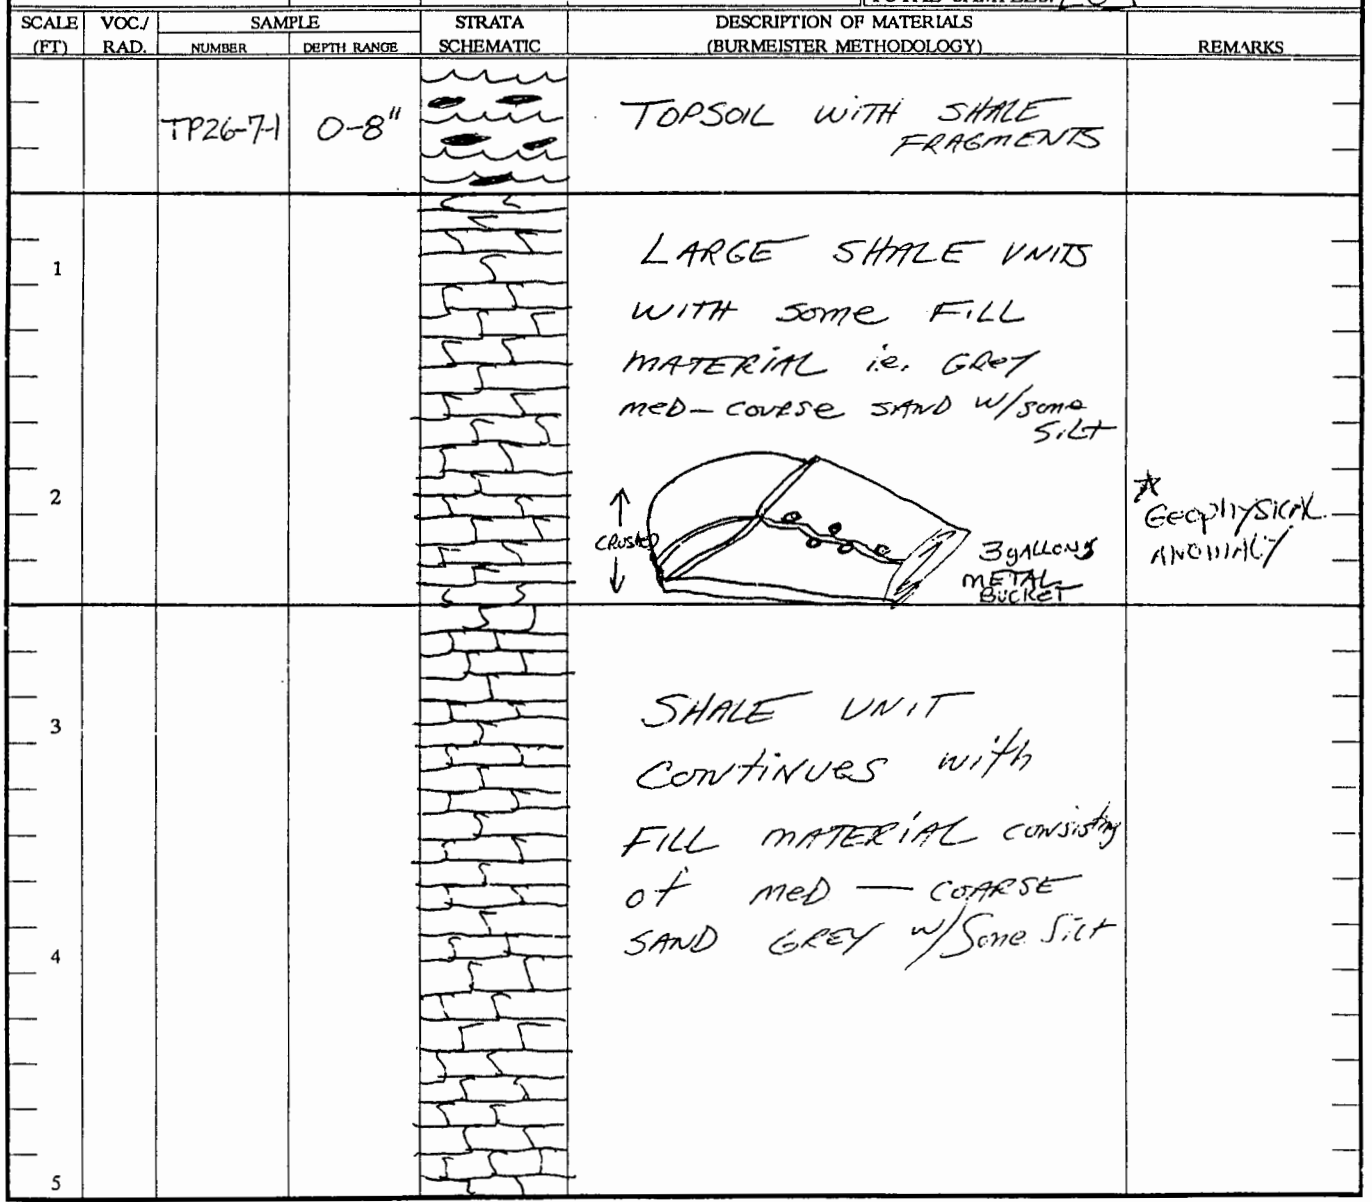 TOTAL SAMPLES:
SCALE (FT)
VOC./ RAD.
SAMPLE
NUMBER
DEPTH RANGE
STRATA SCHEMATIC
DESCRIPTION OF MATERIALS
(BURMEISTER METHODOLOGY)
REMARKS
TP26-7-1
0-8"
TOPSOIL WITH SHALE
FRAGMENTS
1
LARGE SHALE UNITS
WITH some FILL
MATERIAL i.e. GREY
MED-COURSE SAND W/some
SILT
2
CRUSHED
3 gALLONS
METAL
BUCKET
*
GEOPHYSICAL
ANOMALY
3
SHALE UNIT
CONTINUES with
FILL MATERIAL consisting
of MED — COARSE
SAND GREY W/Some Silt
4
5